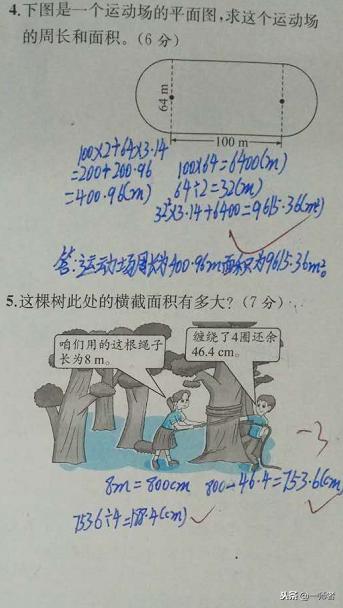 4.下图是一个运动场的平面图,求这个运动场
的周长和面积。(6分)
64 m
100 m
100×2+64×3.14
=200+200.96
=400.96(m)
100×64=6400(m)
64÷2=32(m)
32²×3.14+6400=9615.36(m²)
答:运动场周长为400.96m面积为9615.36m²。
5.这棵树此处的横截面积有多大?(7分)
咱们用的这根绳子
长为8 m。
缠绕了4圈还余
46.4 cm。
-3
8m=800cm 800-46.4=753.6(cm)
753.6÷4=188.4(cm)
头条@一师者